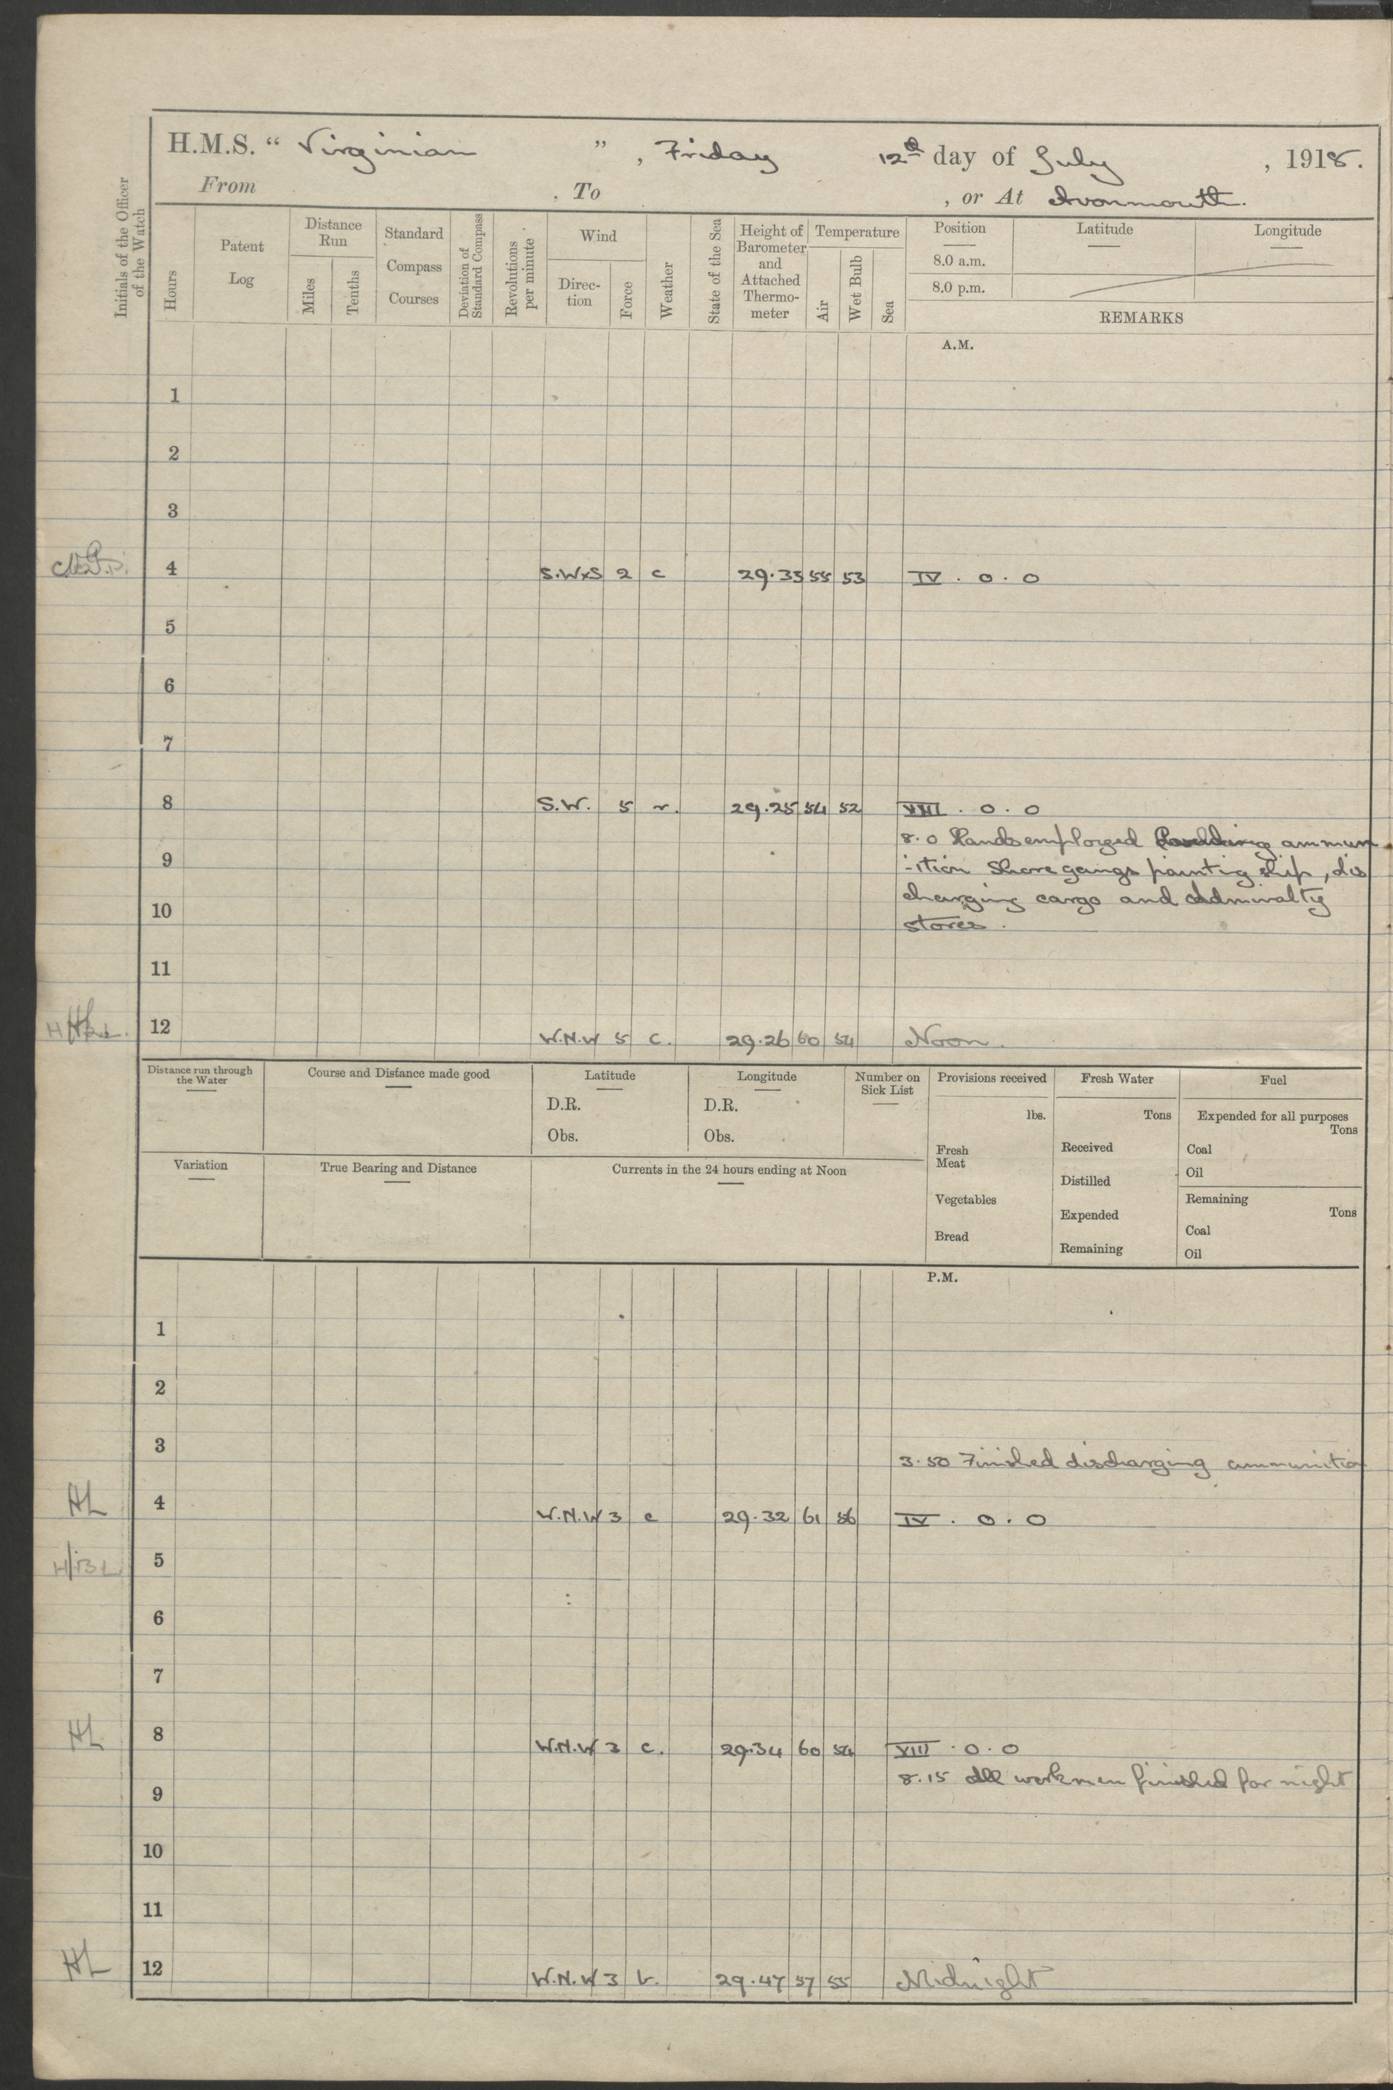 H.M.S. "Virginian", Friday 12th day of July, 1918.
From To , or At Avonmouth.
Initials of the Officer of the Watch
Hours
Patent Log
Distance Run
Miles
Tenths
Standard Compass Courses
Deviation of Standard Compass
Revolutions per minute
Wind
Direction
Force
Weather
State of the Sea
Height of Barometer and Attached Thermometer
Temperature
Air
Wet Bulb
Sea
Position Latitude Longitude
8.0 a.m.
8.0 p.m.
REMARKS
A.M.
1
2
3
4 S.WxS 2 c 29.33 55 53 IV . 0 . 0
5
6
7
8 S.W. 5 r. 29.25 54 52 VIII . 0 . 0
8.0 Hands employed ammun
9
-ition Shore gangs painting ship, dis
charging cargo and Admiralty
10
stores.
11
12 W.N.W 5 c. 29.26 60 54 Noon.
Distance run through the Water
Course and Distance made good
Latitude
D.R.
Obs.
Longitude
D.R.
Obs.
Number on Sick List
Provisions received
lbs.
Fresh Meat
Vegetables
Bread
Fresh Water
Tons
Received
Distilled
Expended
Remaining
Fuel
Expended for all purposes
Tons
Coal
Oil
Remaining
Tons
Coal
Oil
Variation
True Bearing and Distance
Currents in the 24 hours ending at Noon
P.M.
1
2
3
3.50 Finished discharging ammunition
HL 4 W.N.W 3 c 29.32 61 56 IV . 0 . 0
HBL 5
6
7
HL 8 W.N.W 3 c. 29.34 60 54 VIII . 0 . 0
8.15 All workmen finished for night
9
10
11
HL 12 W.N.W 3 b. 29.47 57 55 Midnight